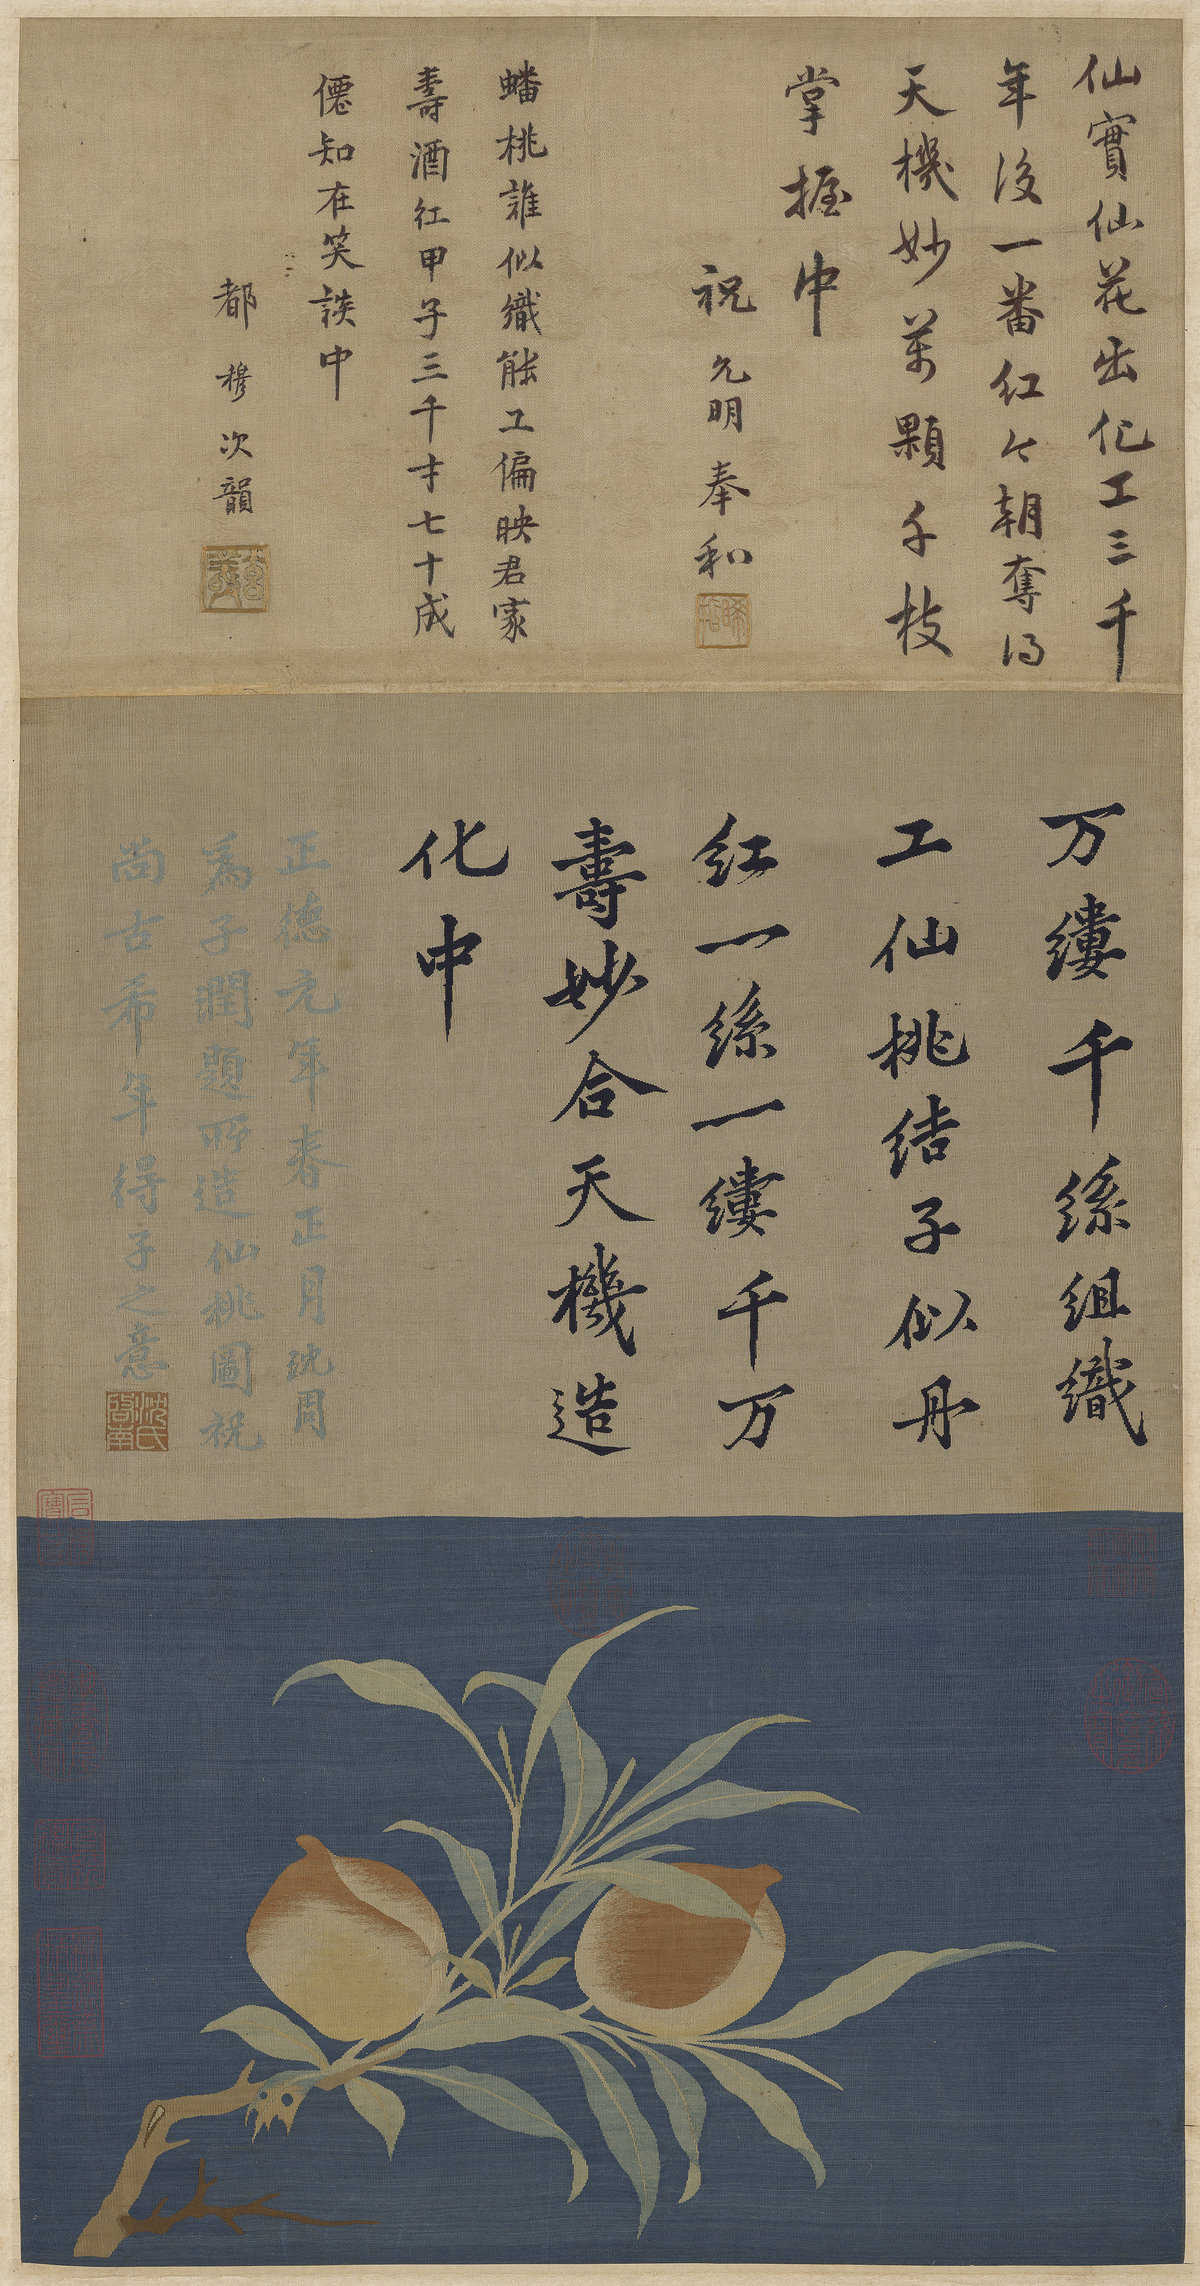 仙實仙花出化工三千
年後一番紅今朝奪得
天機妙萬顆千枝
掌握中
祝允明奉和
蟠桃誰似織能工偏映君家
壽酒红甲子三千才七十成
僊知在笑談中
都穆次韻
万縷千絲組織
工仙桃结子似丹
紅一絲一縷千万
壽妙合天機造
化中
正德元年春正月沈周
為子潤題所造仙桃圖祝
尚古希年得子之意
沈氏啓南